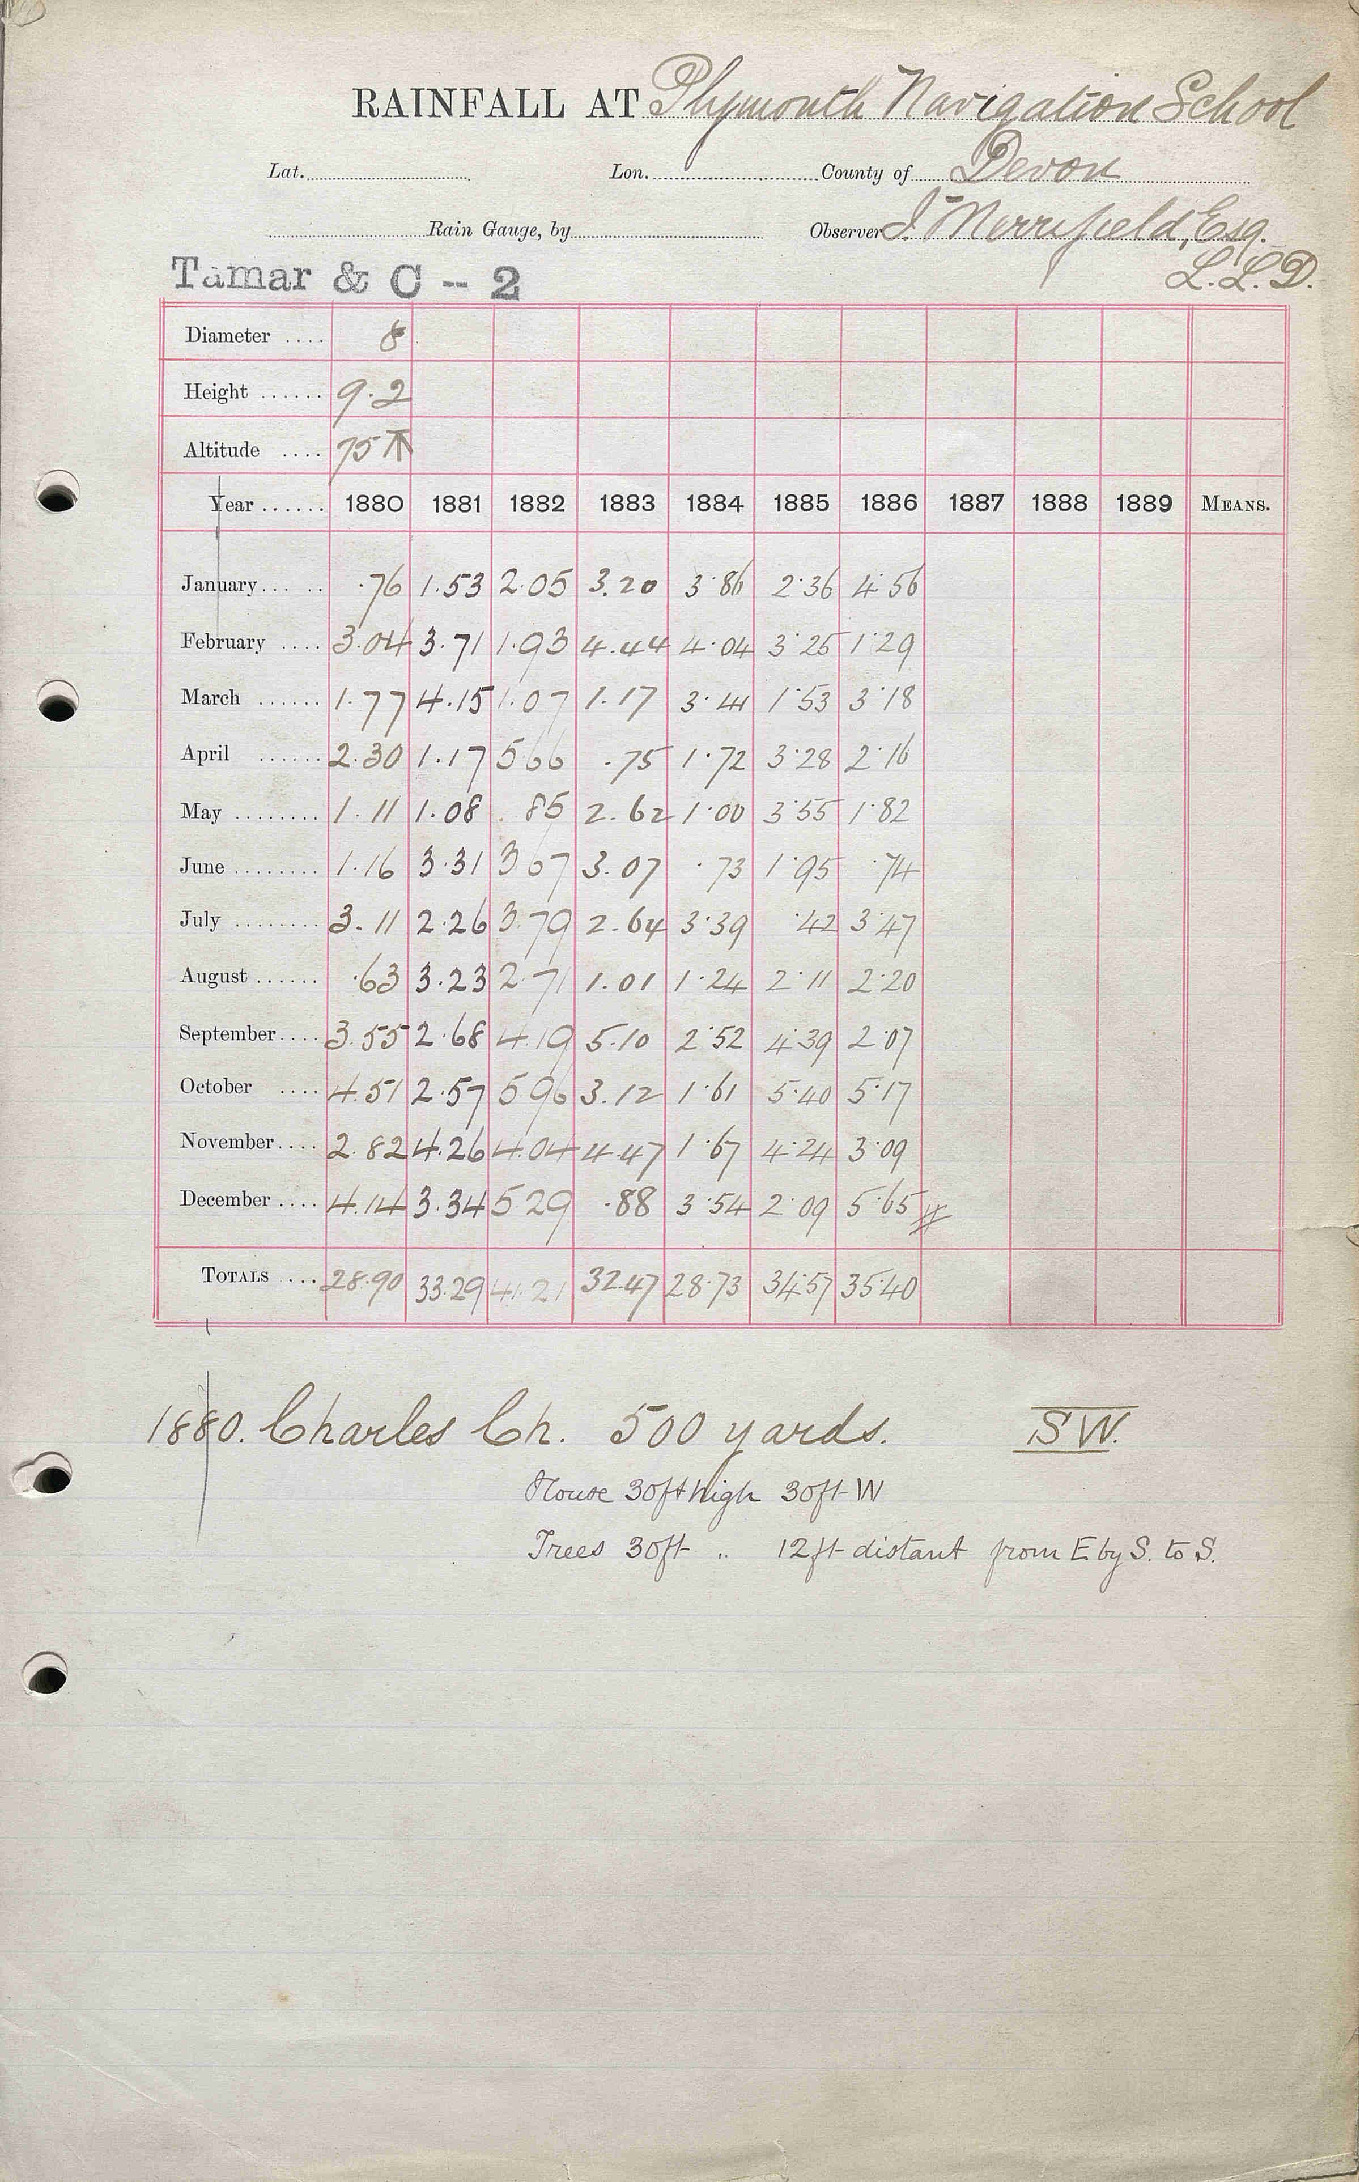 RAINFALL AT Plymouth Navigation School
Lat. Lon. County of Devon
Rain Gauge, by Observer J. Merrifield, Esq.
L.L.D.
Tamar & C -- 2
Diameter .... 8
Height ...... 9.2
Altitude .... 75 T
Year ...... 1880 1881 1882 1883 1884 1885 1886 1887 1888 1889 MEANS.
January ...... .76 1.53 2.05 3.20 3.86 2.36 4.56
February .... 3.04 3.71 1.93 4.44 4.04 3.25 1.29
March ...... 1.77 4.15 1.07 1.17 3.41 1.53 3.18
April ...... 2.30 1.17 5 66 .75 1.72 3.28 2.16
May ........ 1.11 1.08 .85 2.62 1.00 3.55 1.82
June ........ 1.16 3.31 3 67 3.07 .73 1.95 .74
July ........ 3.11 2.26 3.79 2.64 3.39 .42 3.47
August ...... .63 3.23 2.71 1.01 1.24 2.11 2.20
September .... 3.55 2.68 4.19 5.10 2.52 4.39 2.07
October .... 4.51 2.57 5 96 3.12 1.61 5.40 5.17
November .... 2.82 4.26 4.04 4.47 1.67 4.24 3.09
December .... 4.14 3.34 5 29 .88 3.54 2.09 5.65
TOTALS .... 28.90 33.29 41.21 32.47 28.73 34.57 35.40
1880. Charles Ch. 500 yards. SW.
House 30ft high 30ft W
Trees 30ft " 12ft distant from E by S. to S.